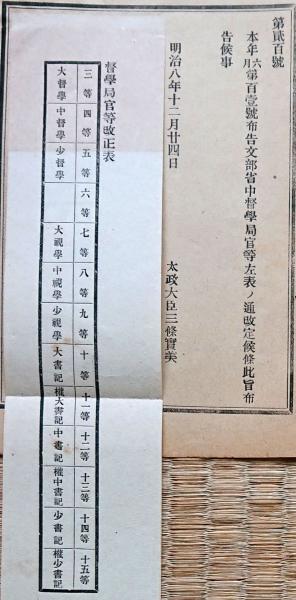 第貳百號
本年六月第百壹號布告文部省中督學局官等左表ノ通改定候條此旨布
告候事
明治八年十二月廿四日
太政大臣三條實美
督學局官等改正表
三等 四等 五等 六等 七等 八等 九等 十等 十一等 十二等 十三等 十四等 十五等
大督學 中督學 少督學 大視學 中視學 少視學 大書記 權大書記 中書記 權中書記 少書記 權少書記